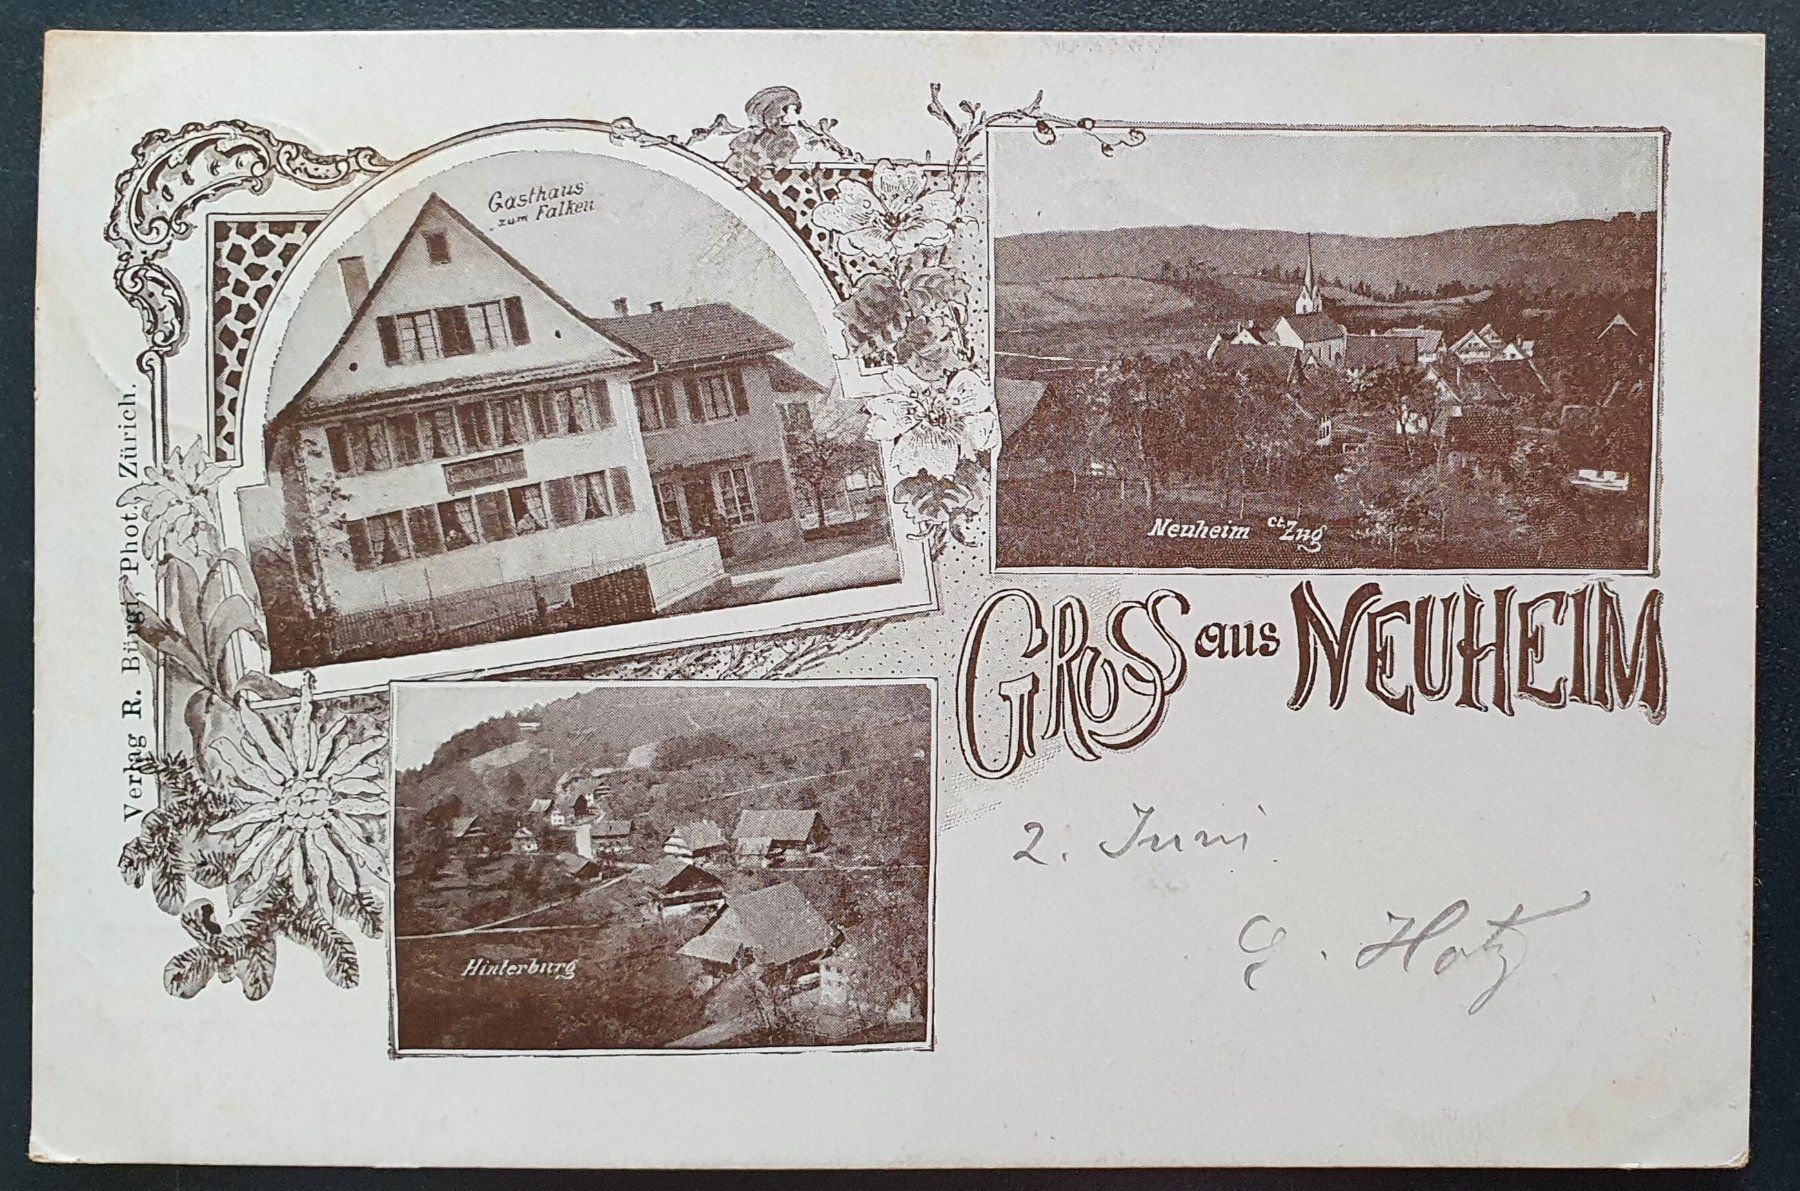 Gasthaus
zum Falken
Neuheim ct. Zug
GRUSS aus NEUHEIM
Hinterburg
2. Juni
G. Hotz
Verlag R. Bürgi, Phot. Zürich.